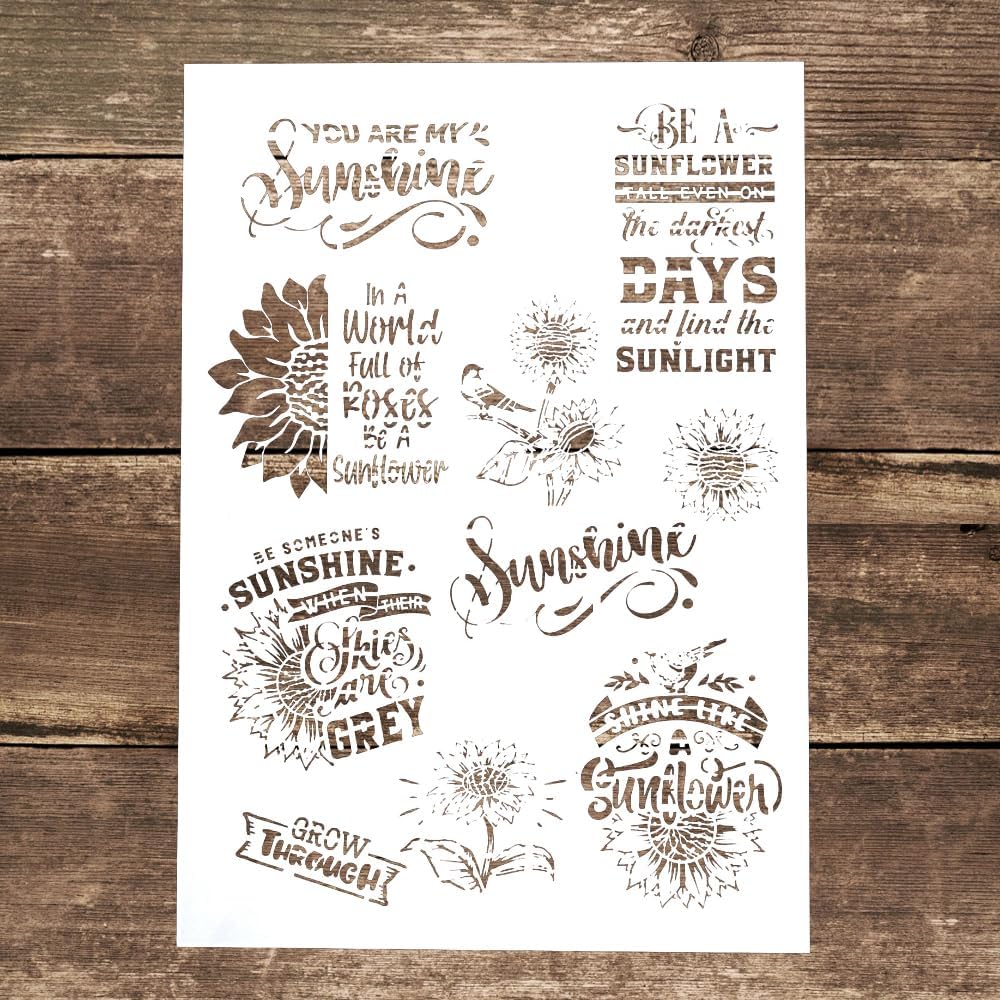 YOU ARE MY
Sunshine
BE A
SUNFLOWER
TALL EVEN ON
the darkest
DAYS
and find the
SUNLIGHT
In A
World
Full of
Roses
Be A
Sunflower
BE SOMEONE'S
SUNSHINE
WHEN THEIR
Skies
are
GREY
Sunshine
SHINE LIKE
A
Sunflower
GROW
THROUGH